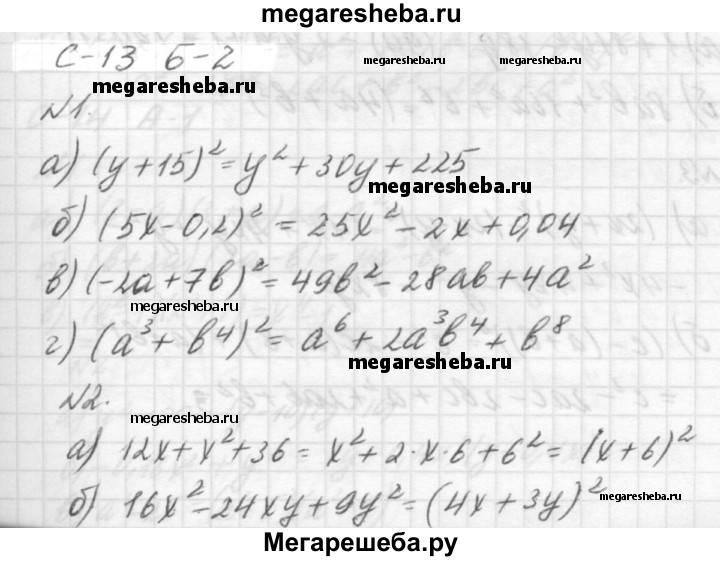 megaresheba.ru
С-13 Б-2
megaresheba.ru megaresheba.ru
megaresheba.ru
№1.
а) (y+15)²=y²+30y+225
megaresheba.ru
б) (5x-0,2)²=25x²-2x+0,04
в) (-2a+7b)²=49b²-28ab+4a²
megaresheba.ru
г) (a³+b⁴)²=a⁶+2a³b⁴+b⁸
megaresheba.ru
№2.
megaresheba.ru
а) 12x+x²+36=x²+2·x·6+6²=(x+6)²
б) 16x²-24xy+9y²=(4x+3y)²
megaresheba.ru
Мегарешеба.ру